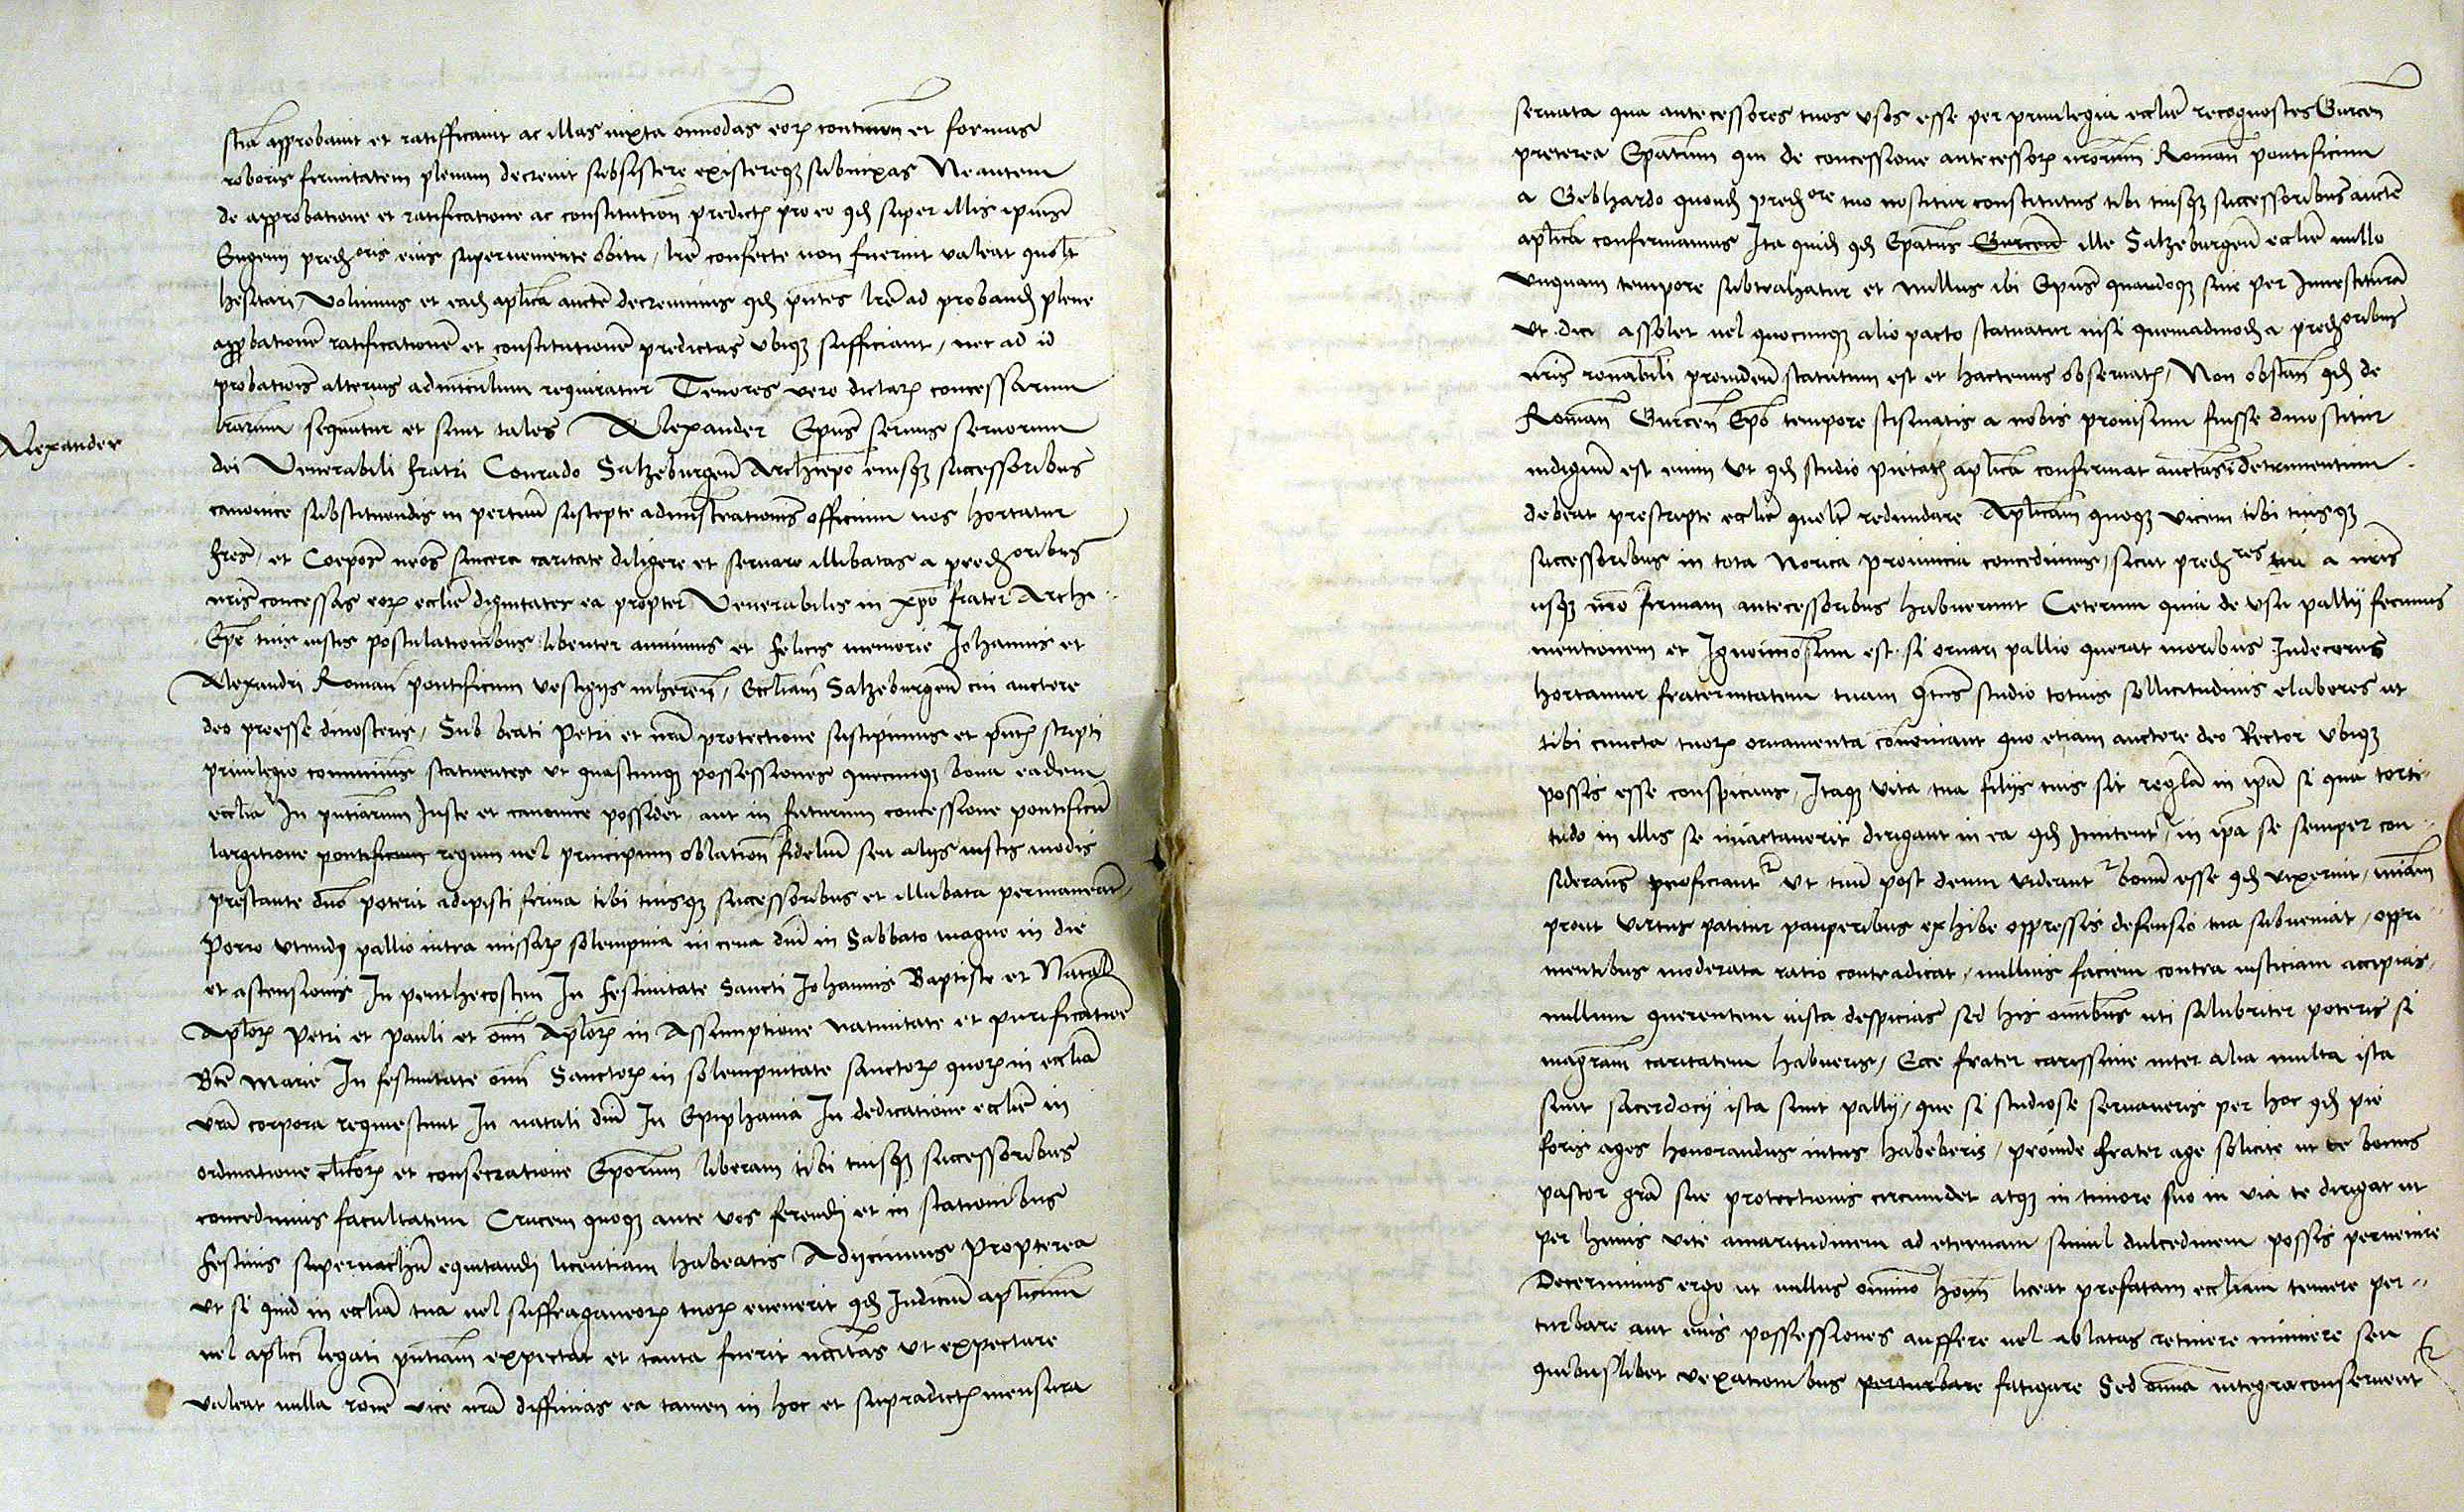 stia approbauit et ratifficauit ac illas iuxta omnodas eorum continen et formas
roboris firmitatem plenam decreuit subsistere existereque subnixas Ne autem
de approbatione et ratificatione ac constitution predict pro eo quod super illis ipius
Eugenij predoris eius superueniente obitu / lre confecte non fuerint valeat quolt
hesitari / Volumus et ead aplica aucte decreuimus quod pntes lre ad proband plene
approbatione ratificatione et constitutione predictas vbique sufficiant / nec ad id
probationis alterius adminiculum requiratur Tenores vero dictarum concessarum
Alexander
lrarum sequntur et sunt tales Alexander Epus seruus seruorum
dei Venerabili fratri Conrado Salzeburgen Archiepo eiusque successoribus
canonice substituendis in perpuum suscepte administrationis officium nos hortatur
fres / et Coepos nros sincera caritate diligere et seruare illibatas a predoribus
nris concessas eorum ecclie dignitates ea propter Venerabilis in xpo frater Archi
Epe tuis iustis postulationibus libenter annuimus et felicis memorie Johannis et
Alexandri Roman pontificum vestigijs inheren / Eccliam Salzeburgen cui auctore
deo preesse dinosceris / Sub beati Petri et nra protectione suscipimus et pnt scripti
priuilegio communimus statuentes vt quascunque possessiones quecunque bona eadem
ecclia In pntiarum Juste et canonice possidet aut in futurum concessione pontificum
largitione pontificum regum vel principum oblation fidelium seu alijs iustis modis
prestante dno poterit adipisci firma tibi tuisque successoribus et illibata permaneat /
Porro vtendi pallio intra missarum solempnia in cena dni in Sabbato magno in die
et ascensionis In penthecosten In festiuitate Sancti Johannis Baptiste et Natal
Aplorum Petri et Pauli et omi Aplorum in Assumptione natiuitate et purificatione
Bte Marie In festiuitate omi Sanctorum in solempnitate sanctorum quorum in ecclia
vra corpora requiescunt In natali dni In Epiphania In dedicatione ecclie in
ordinatione clicorum et consecratione Eporum liberam tibi tuisque successoribus
concedimus facultatem Crucem quoque ante vos ferendi et in stationibus
festiuis super nachum equitandi licentiam habeatis Adijcimus Propterea
vt si quid in ecclia tua vel suffraganeorum tuorum euenerit quod Judicium aplicum
vel aplici legati pntiam expectat et tanta fuerit necitas vt expectare
valeat nulla rone vice nra diffinias ea tamen in hoc et supradict mensura
seruata qua antecessores tuos vsos esse per priuilegia ecclie recognosces Gurcen
preterea Epatum qui de concessione antecessorum nrorum Roman pontificum
a Gebhardo quond predore tuo noscitur constitutus tibi tuisque successoribus aucte
aplica confirmamus Ita quid quod Epatus Gurcen ille Salzeburgen ecclie nullo
vnquam tempore subtrahatur et nullus ibi Epus quandoque siue per Inuestitura
vt dici assolet vel quocunque alio pacto statuatur nisi quemadmod a predoribus
nris ronabili prouiden statutum est et hactenus obseruat / Non obstan quod de
Roman Gurcen Epo tempore scismatis a nobis prouisum fuisse dinoscitur
indignum est enim vt quod studio pietat aplica confirmat auctas detrimentum
debeat prescripte ecclie quelt redundare Aplicam quoque vicem tibi tuisque
successoribus in tota Norica prouincia concedimus / sicut predres tui a nris
usque nro firmam antecessoribus habuerunt Ceterum quia de vsu pallij fecimus
mentionem et Ignominosum est si ornari pallio querat moribus Indecorus
hortamur fraternitatem tuam qtus studio totius sollicitudinis elabores ut
tibi cuncta tuorum ornamenta conueniant quo etiam auctore deo Rector vbique
possis esse conspicuus / Itaque vita tua filijs tuis sit regla in ipa si qua torti
tudo in illis se iniactauerit dirigant in ea quod imitent / in ipa se semper con
siderans proficiant vt tuum post deum videant bonum esse quod vixerint / miam
prout virtus patitur pauperibus exhibe oppressis defensio tua subueniat / oppri
mentibus moderata ratio contradicat / nullius faciem contra iusticiam accipias /
nullum querentem iusta despicias sed his omibus uti salubriter poteris si
magram caritatem habueris / Ecce frater carissime inter alia multa ista
sunt sacerdocij ista sunt pallij / que si studiose seruaueris per hoc quod pie
foris ages honorandus intus habeberis / proinde frater age solicite ut te bonus
pastor gra sue protectionis circumdet atque in timore suo in via te dirigat ut
per huius vite amaritudinem ad eternam simul dulcedinem possis peruenire
Decernimus ergo ut nullus omnino homi liceat prefatam eccliam temere per
turbare aut eius possessiones auffere vel ablatas retinere minuere seu
quibuslibet vexationibus perturbare fatigare Sed omia integra conseruent